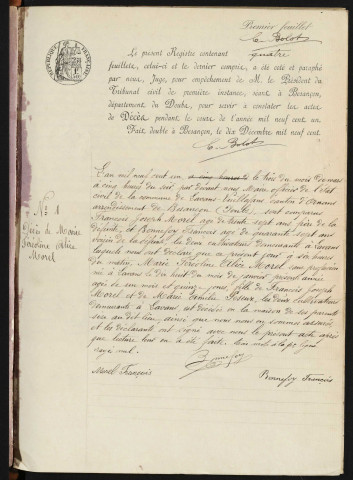 Premier feuillet
C. Bolot
quatre
RÉPUBLIQUE FRANÇAISE
Le présent Registre contenant
feuillets, celui-ci et le dernier compris, a été coté et paraphé
par nous, Juge, pour empêchement de M. le Président du
Tribunal civil de première instance, séant à Besançon,
département du Doubs, pour servir à constater les actes
de Décès pendant le cours de l'année mil neuf cent un.
Fait double à Besançon, le dix Décembre mil neuf cent.
C. Bolot
N° 1
Décès de Marie
Alice
Morel
L'an mil neuf cent un le six du mois de mars
à cinq heures du soir par devant nous Maire officier de l'état
civil de la commune de Lavans-Vuillafans canton d'Ornans
arrondissement de Besançon (Doubs), sont comparus
François Joseph Morel âgé de trente sept ans père de la
défunte et Bonnefoy François âgé de quarante sept ans
voisin de la défunte les deux cultivateurs demeurant à Lavans
lesquels nous ont déclaré que ce présent jour à heures
du matin, Marie Alice Morel sans profession
née à Lavans le dix huit du mois de janvier présent année
âgée de un mois et quinze jours fille de François Joseph
Morel et de Marie les deux cultivateurs
demeurant à Lavans est décédée en la maison de ses parents
sise au dit lieu, ainsi que nous nous en sommes assurés
et les déclarants ont signé avec nous le présent acte après
que lecture leur en a été faite.
rayé nul.
Bonnefoy
Morel François
Bonnefoy François